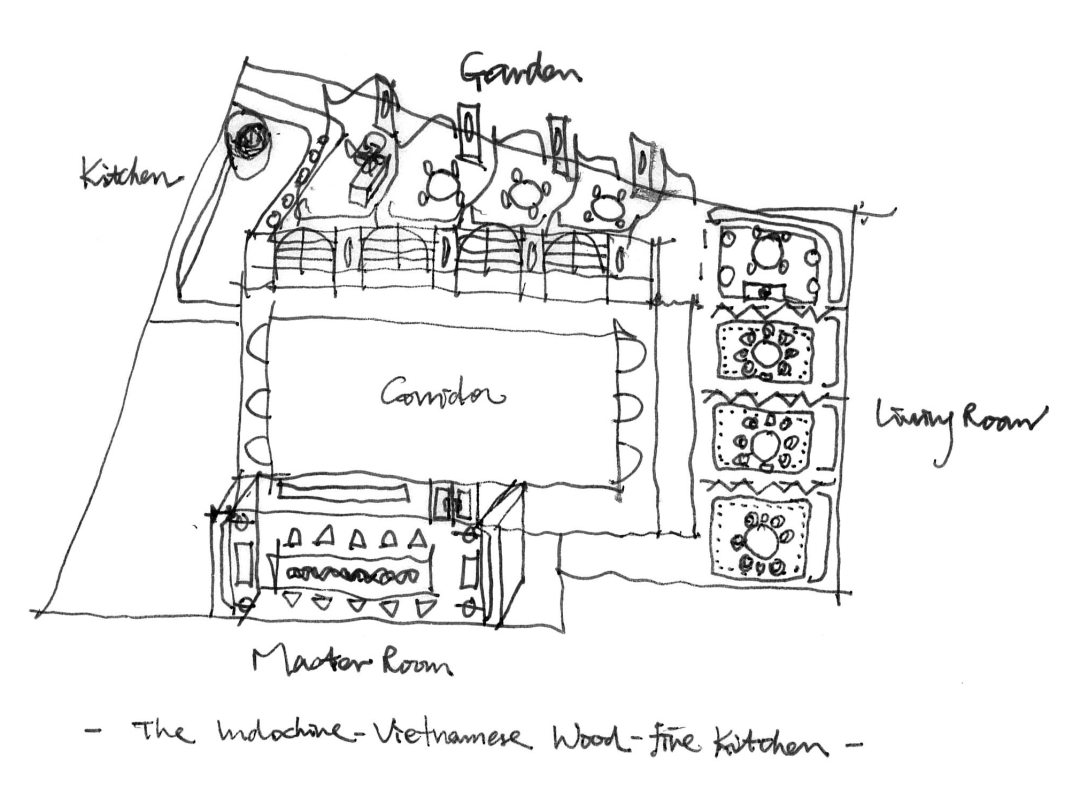 Garden
Kitchen
Corridor
Living Room
Master Room
- The Indochine-Vietnamese Wood-fire Kitchen -